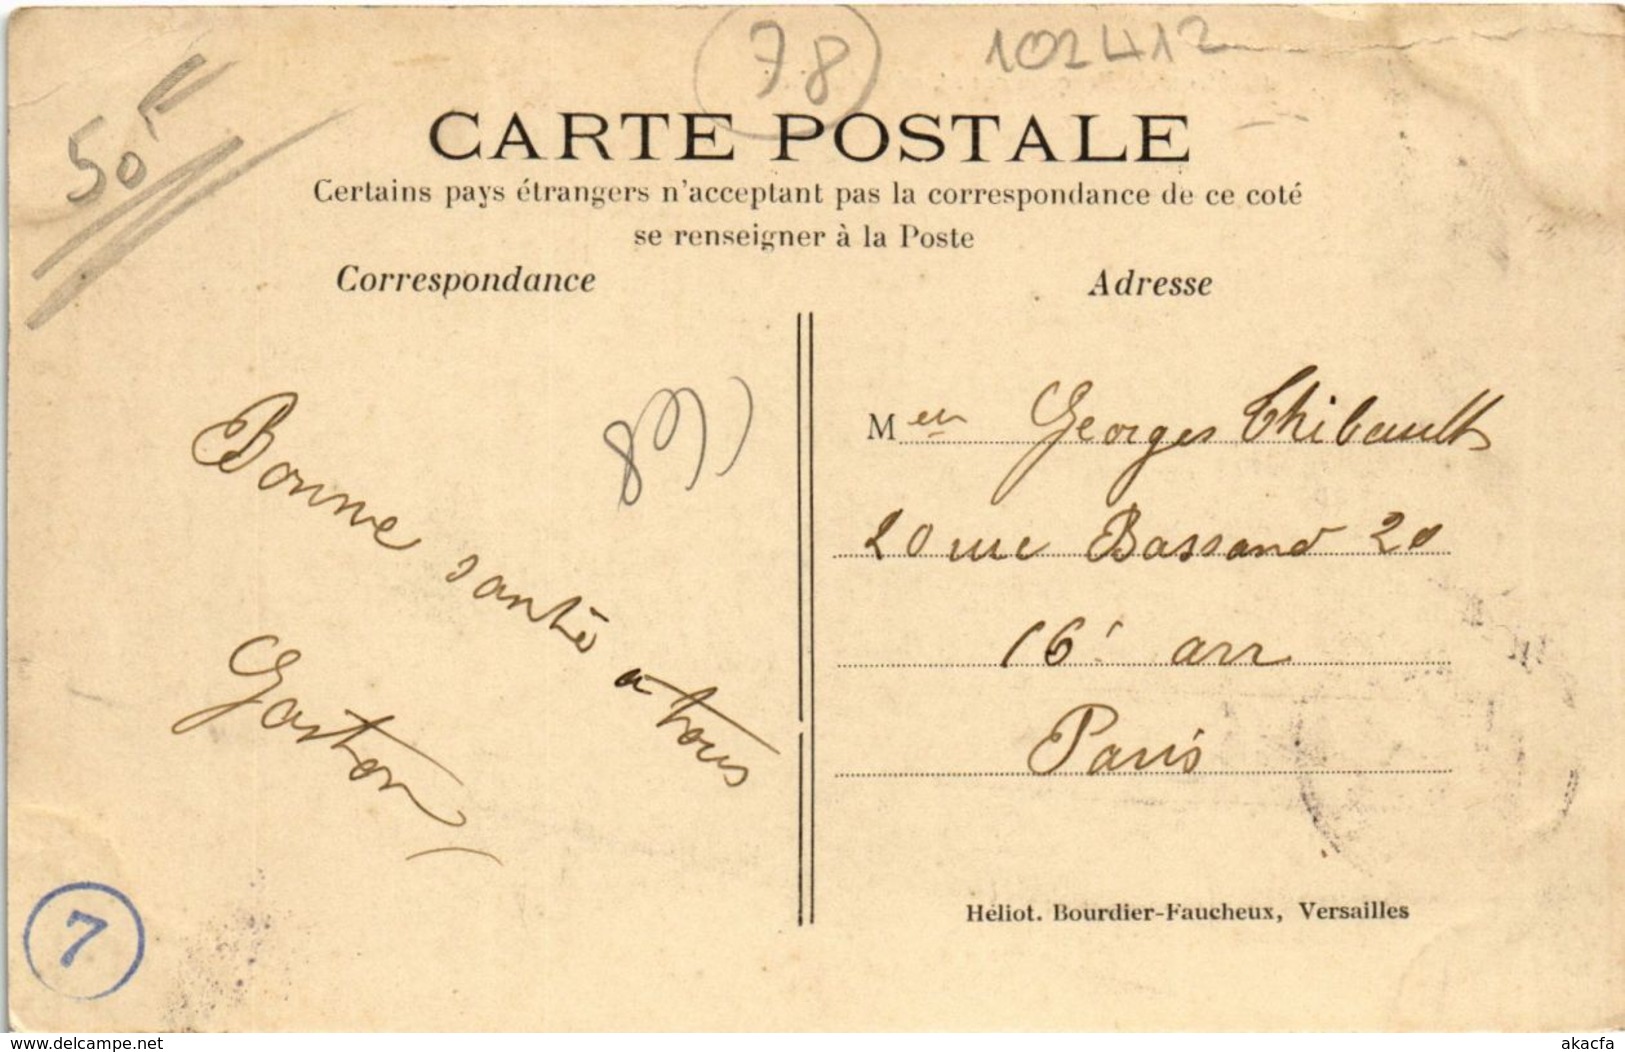 78
102412
50F
CARTE POSTALE
Certains pays étrangers n'acceptant pas la correspondance de ce coté
se renseigner à la Poste
Correspondance
Adresse
Bonne santé à tous
Gaston
Georges Thibault
20 rue Bassano 20
16e arr
Paris
Héliot. Bourdier-Faucheux, Versailles
7
www.delcampe.net
akacfa